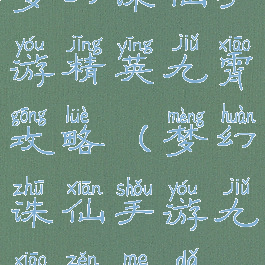 yóu jīng yīng jiǔ xiāo
游精英九霄
gōng lüè mèng huàn
攻略(梦幻
zhū xiān shǒu yóu jiǔ
诛仙手游九
xiāo zěn me dǎ